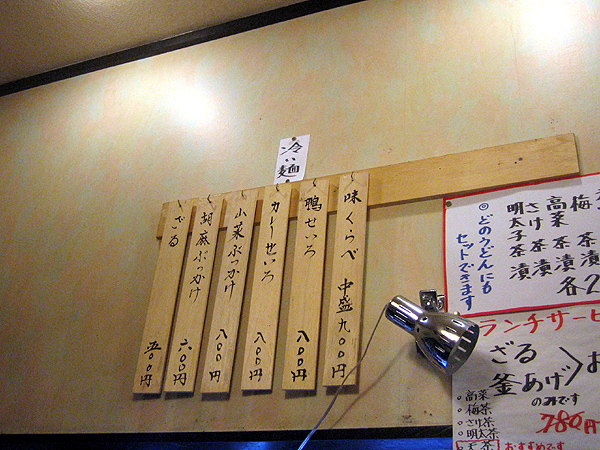 冷い麺
味くらべ 中盛九〇〇円
鴨せいろ 八〇〇円
カレーせいろ 八〇〇円
小菜ぶっかけ 八〇〇円
胡麻ぶっかけ 六〇〇円
ざる 五〇〇円
梅茶漬
高菜茶漬
さけ茶漬
明太子茶漬
各2
◎どのうどんにも
セットできます
ランチサービ
ざる
釜あげ
のみです
780円
○高菜
○梅茶
○さけ茶
○明太茶
○天茶
おすすめです